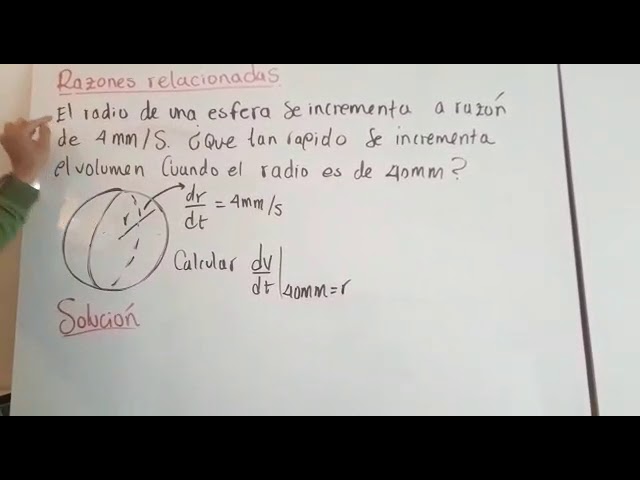 Razones relacionadas
El radio de una esfera Se incrementa a razón
de 4mm/S. ¿Que tan rapido Se incrementa
el volumen Cuando el radio es de 40mm?
r
dr/dt = 4mm/s
Calcular dv/dt | 40mm=r
Solución